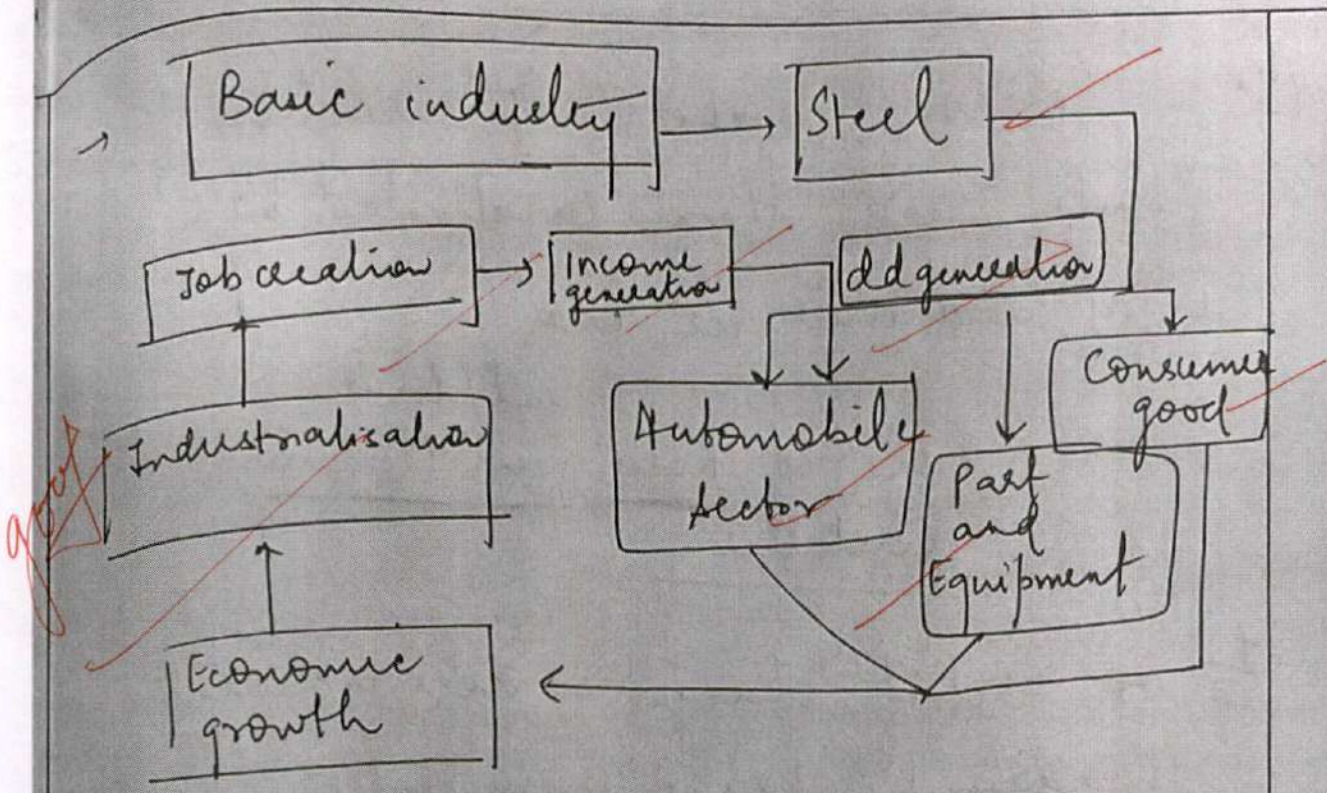 Basic industry
Steel
Job creation
Income
generation
dd generation
Consumer
good
Industrialisation
Automobile
sector
Part
and
Equipment
good
Economic
growth